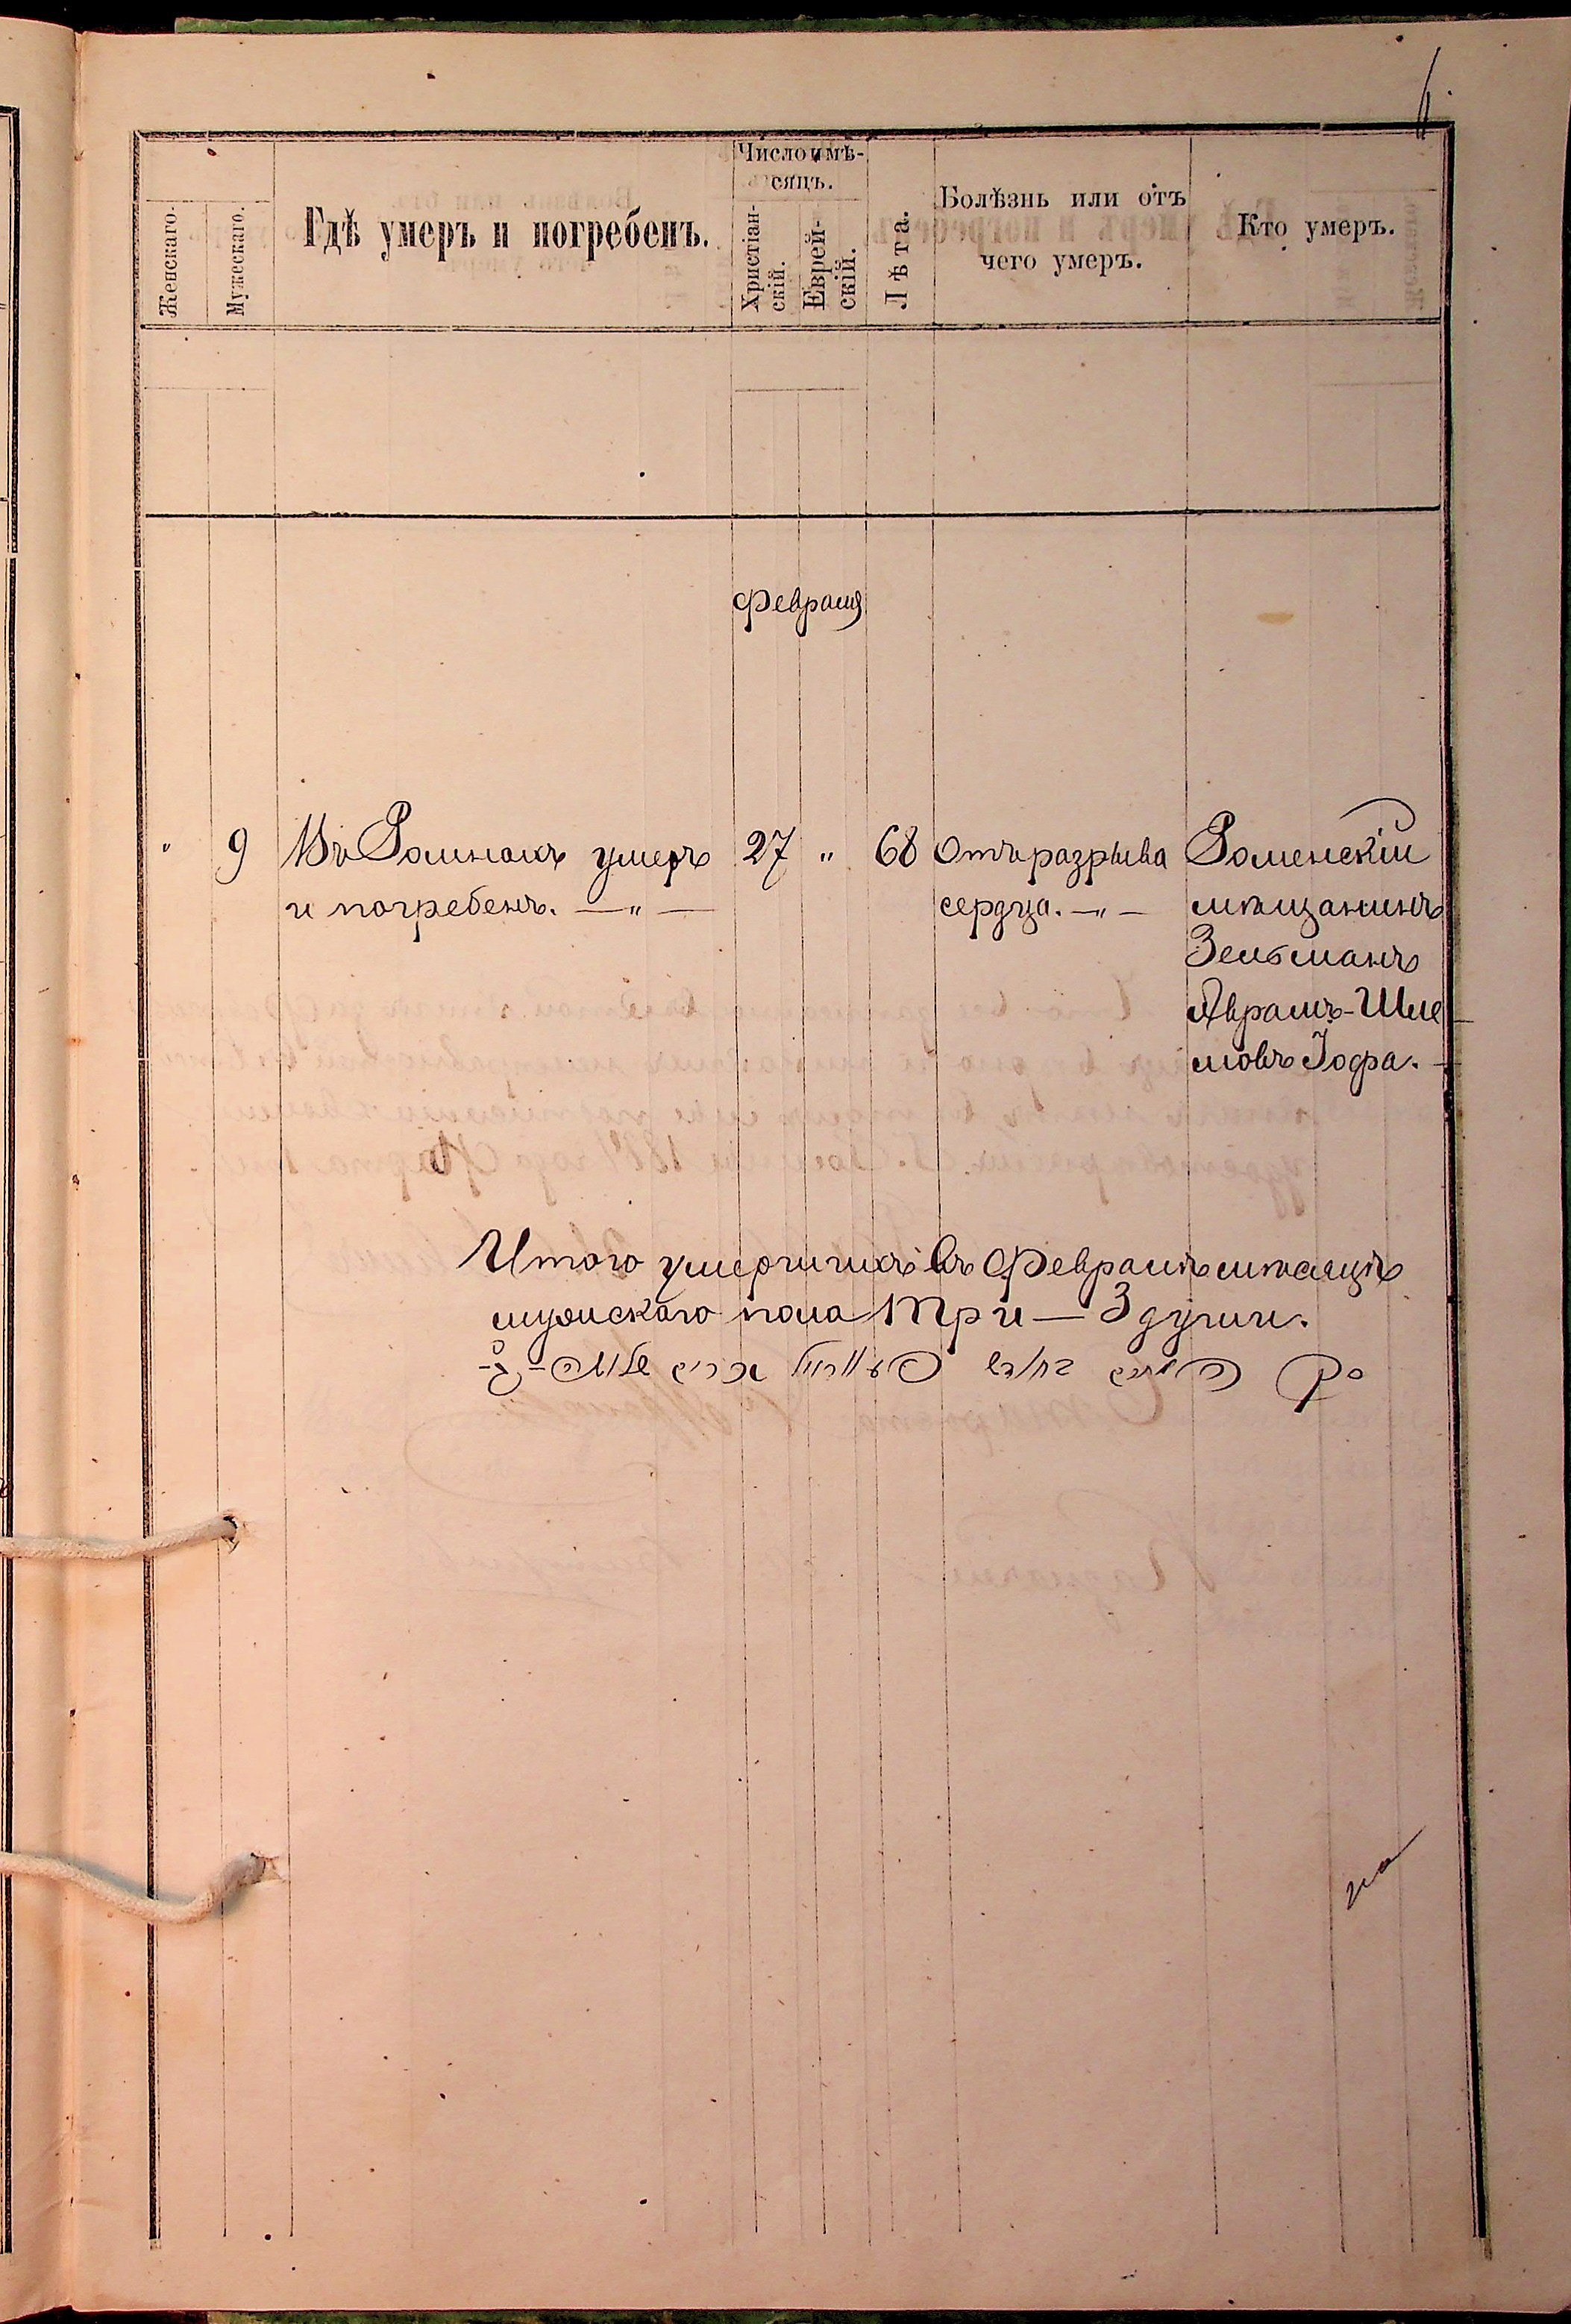 Число и мѣ-
сяцъ.
Женскаго.
Мужескаго.
Гдѣ умеръ и погребенъ.
Христіан-
скій.
Еврей-
скій.
Лѣта.
Болѣзнь или отъ
чего умеръ.
Кто умеръ.
Февраля
" 9 Въ Ромнахъ умеръ 27 " 68 Отъ разрыва Роменскій
и погребенъ. —"— сердца. —"— мѣщанинъ
Зельманъ
Аврамъ-Шле-
мовъ Іофа. —
Итого умершихъ въ Февралѣ мѣсяцѣ
мужскаго пола три — 3 души.